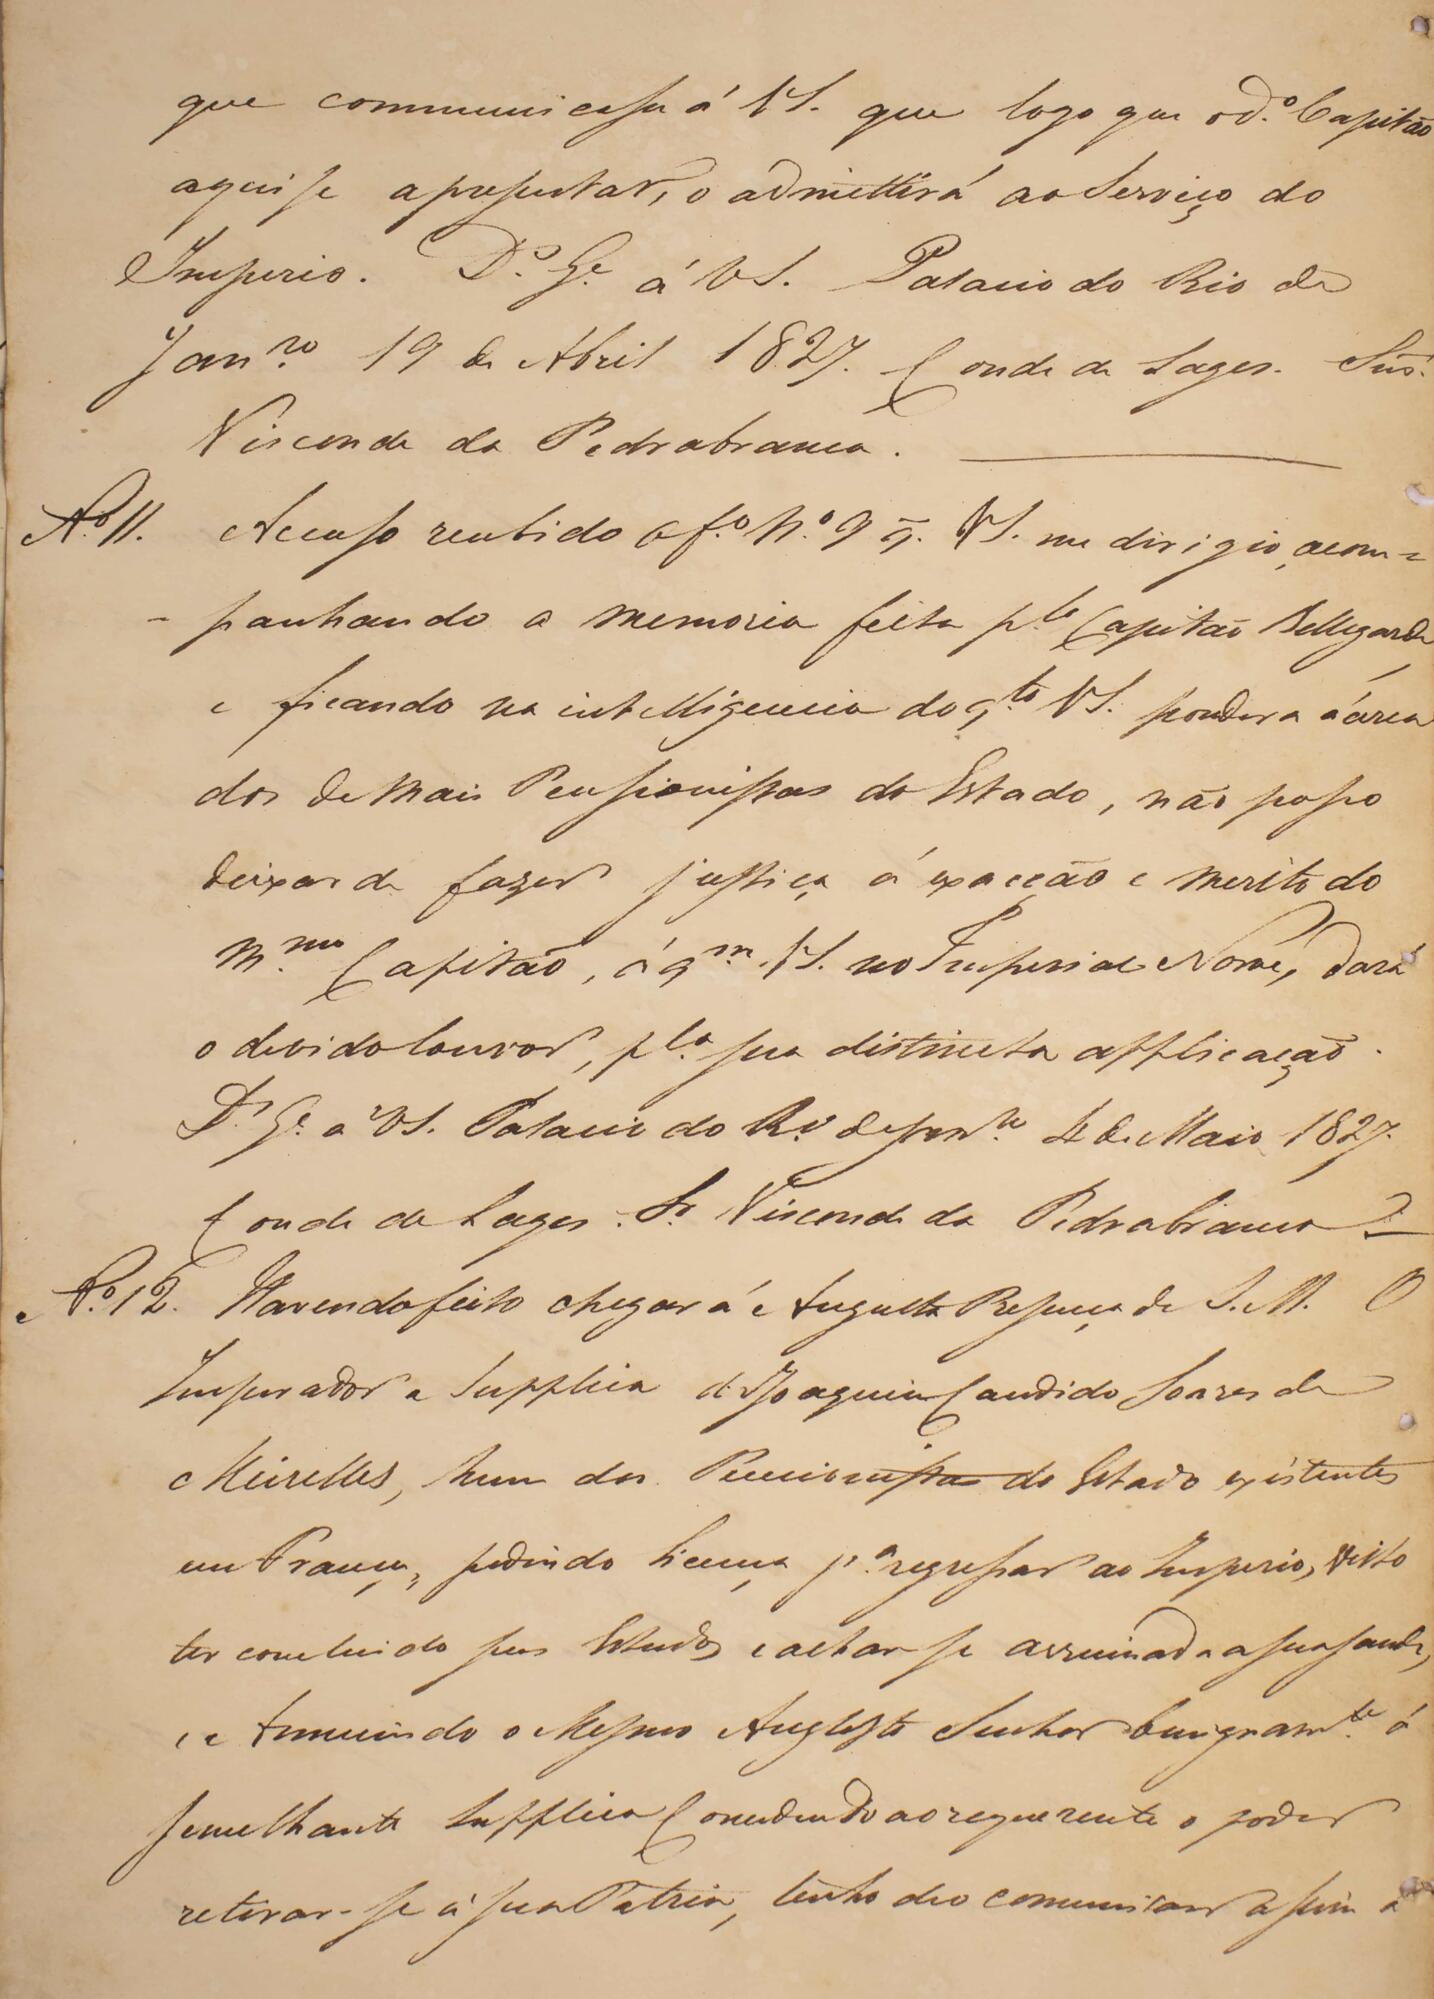 que communicasse á VS. que logo que o d.º Capitão
aqui se apresentar, o admittirá ao Serviço do
Imperio. D.s G.e á VS. Palacio do Rio de
Jan.ro 19 de Abril 1827. Conde de Lages. Snr.
Visconde da Pedrabranca.
N.º 11. Accuso recebido Off.º N.º 9 q̃. VS. me dirigio, acom=
- panhando a memoria feita p.lo Capitão Bellegarde
e ficando na intelligencia do q.to VS. pondera á cerca
dos de mais Pensionistas do Estado, não posso
deixar de fazer justiça á exacção e merito do
M.mo Capitão, á q.m VS. no Imperial Nome, dará
o devido louvor, p.la sua distincta applicação.
D.s G.e a VS. Palacio do R.º de Jan.ro 4 de Maio 1827.
Conde de Lages. Sr. Visconde da Pedrabranca
N.º 12. Havendo feito chegar á Augusta Presença de S. M. O
Imperador a Supplica de Joaquim Candido Soares de
Meirelles, hum dos Pencionistas do Estado existentes
em França, pedindo licença p.a regressar ao Imperio, visto
ter concluido seus Estudos e achar se arruinada a sua saude,
e Annuindo o Mesmo Augusto Senhor benignam.te á
semelhante Supplica Concedendo ao requerente o poder
retirar-se á sua Patria, tenho de o comunicar assim a